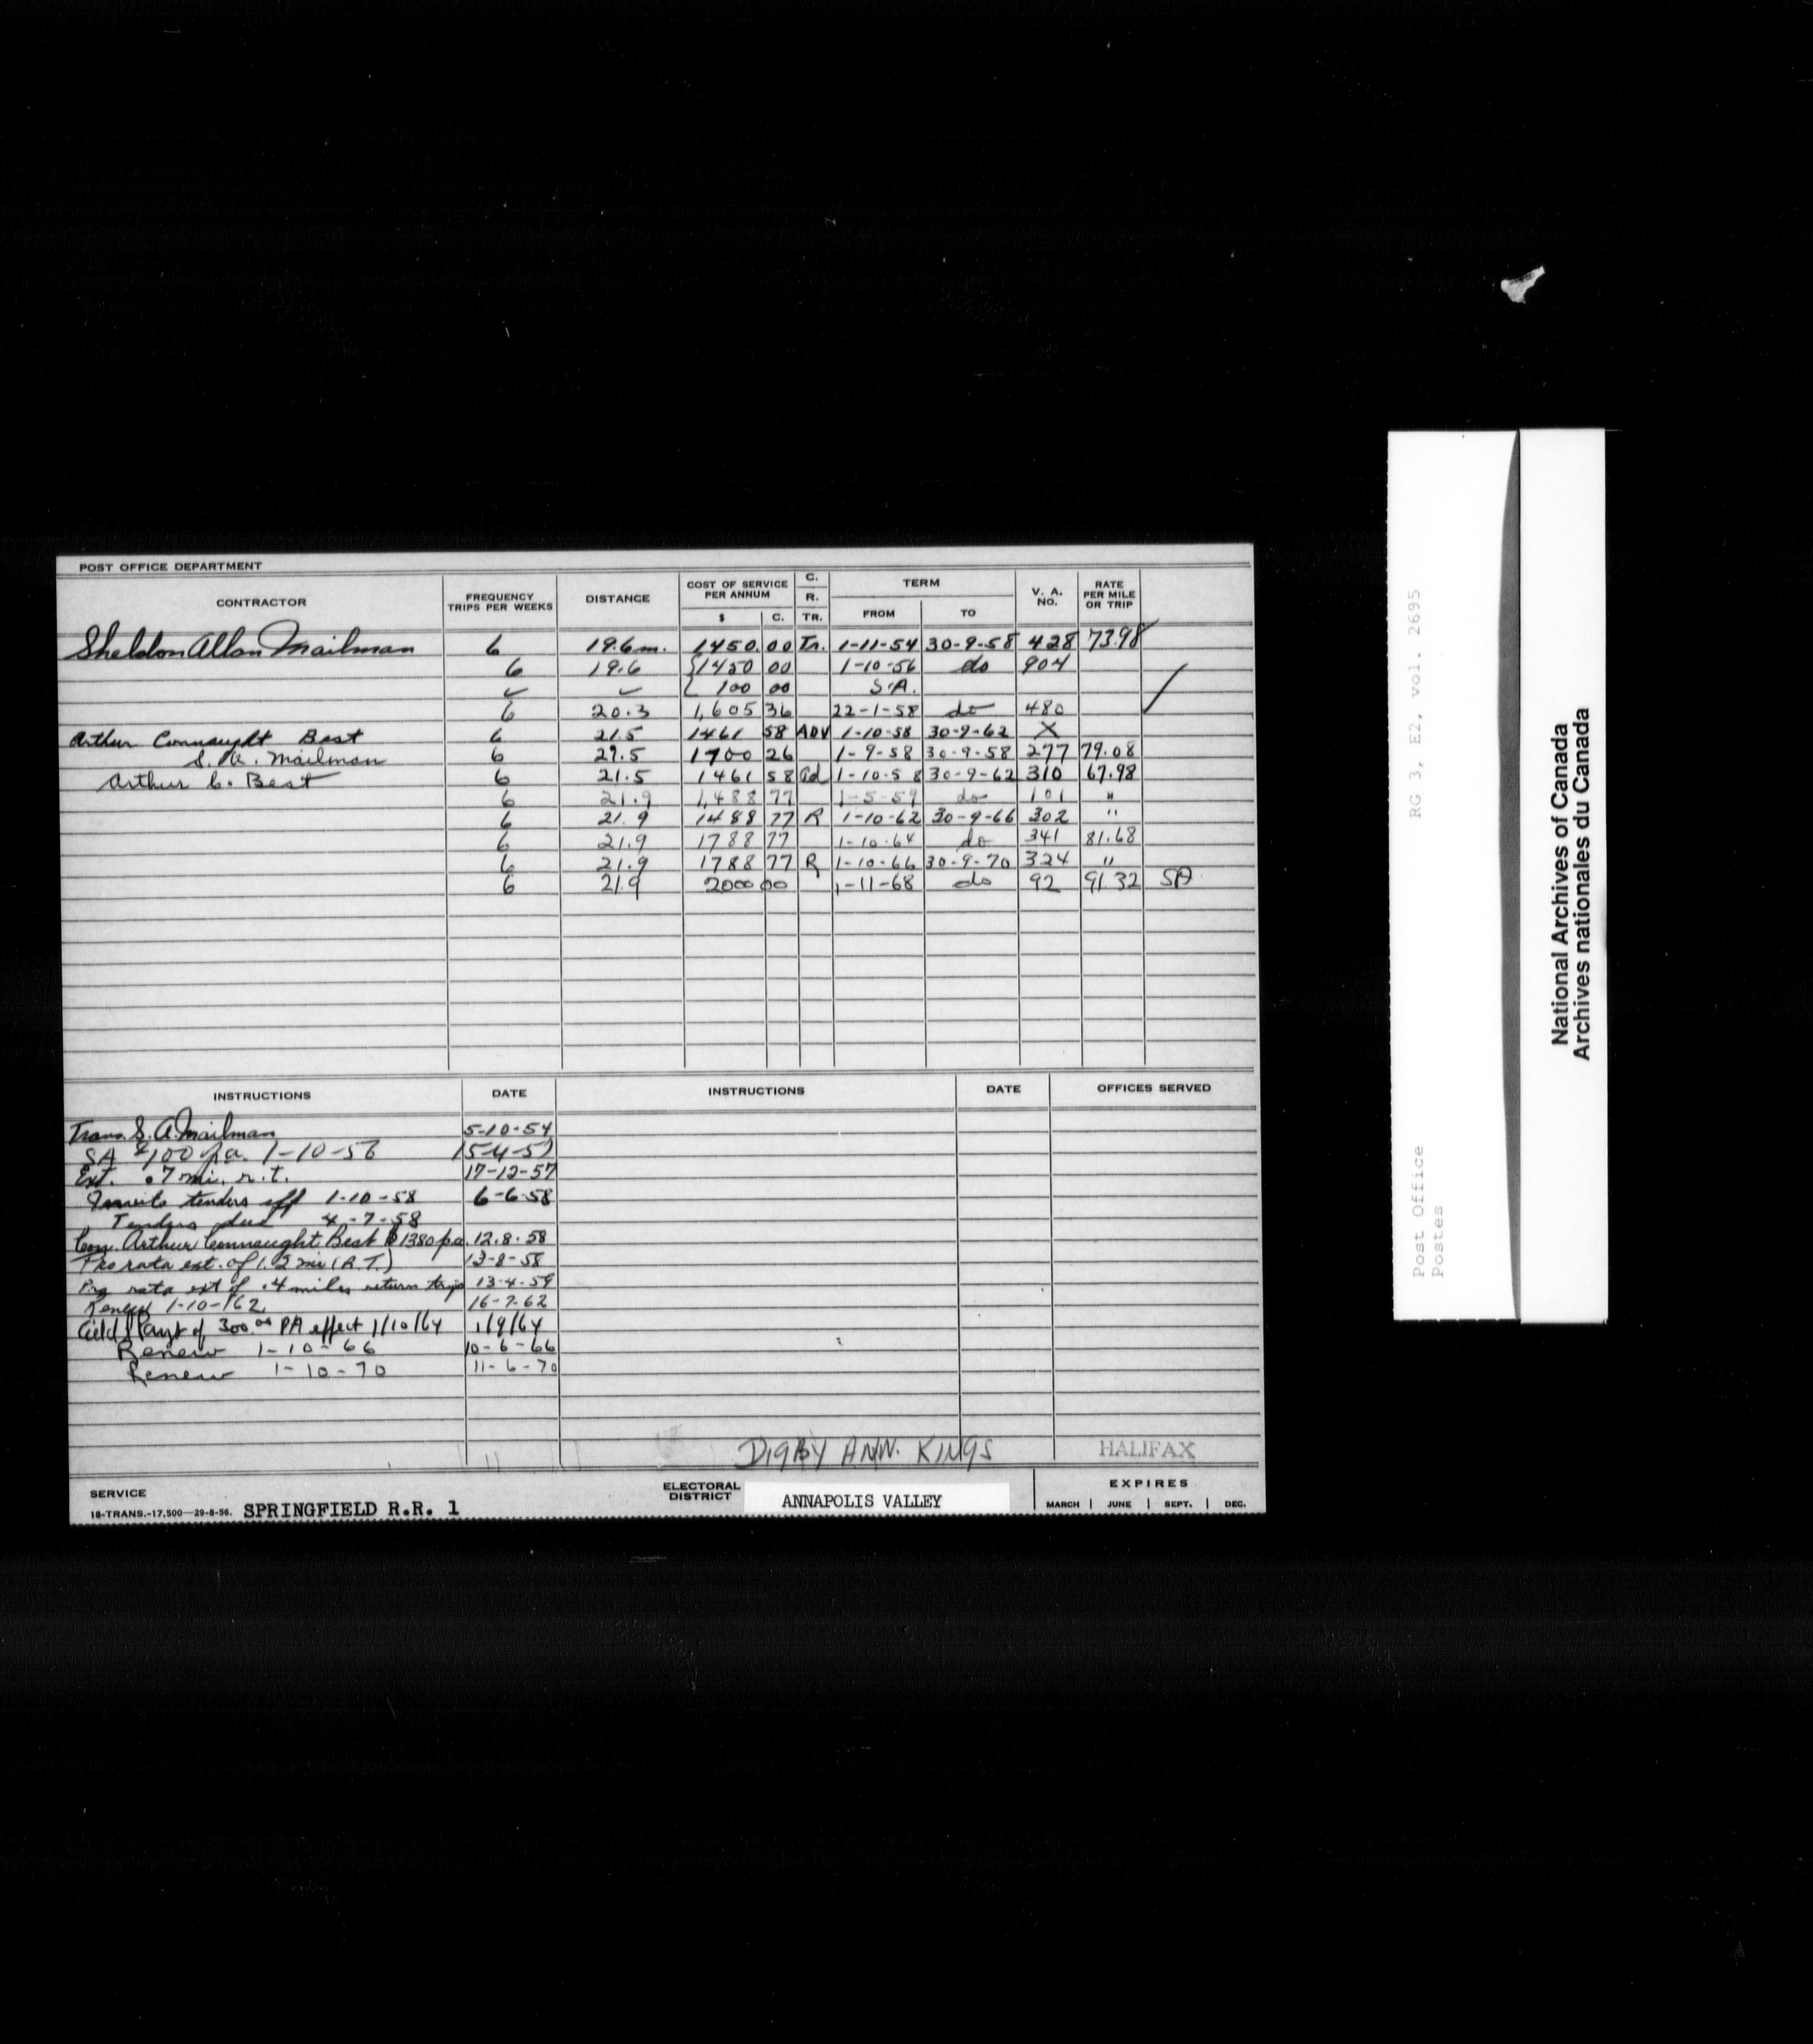 POST OFFICE DEPARTMENT
CONTRACTOR FREQUENCY TRIPS PER WEEKS DISTANCE COST OF SERVICE PER ANNUM $ C. C. R. TR. TERM FROM TO V. A. NO. RATE PER MILE OR TRIP
Sheldon Allan Mailman 6 19.6 m. 1450.00 Tr. 1-11-54 30-9-58 428 73.98
6 19.6 {1450 00 1-10-56 do 904
✓ ✓ { 100 00 S.A.
6 20.3 1,605 36 22-1-58 do 480
Arthur Connaught Best 6 21.5 1461 58 ADV 1-10-58 30-9-62 X
S. A. Mailman 6 21.5 1700 26 1-9-58 30-9-58 277 79.08
Arthur C. Best 6 21.5 1461 58 Ad 1-10-58 30-9-62 310 67.98
6 21.9 1,488 77 1-5-59 do 101 "
6 21.9 1488 77 R 1-10-62 30-9-66 302 "
6 21.9 1788 77 1-10-64 do 341 81.68
6 21.9 1788 77 R 1-10-66 30-9-70 324 "
6 21.9 2000 00 1-11-68 do 92 91 32 SA
INSTRUCTIONS DATE INSTRUCTIONS DATE OFFICES SERVED
Trans. S. A. Mailman 5-10-54
SA $100 p.a. 1-10-56 15-4-57
Ext. .7 mi. r.t. 17-12-57
Invite tenders eff 1-10-58 6-6-58
Tenders due 4-7-58
Con. Arthur Connaught Best $1380 p.a. 12.8.58
Pro rata ext. of 1.2 mi (R.T.) 13-8-58
Pro rata ext of .4 miles return trip 13-4-59
Renew 1-10-62 16-7-62
Add Paymt of 300.00 PA effect 1/10/64 1/9/64
Renew 1-10-66 10-6-66
Renew 1-10-70 11-6-70
DIGBY ANN. KINGS HALIFAX
SERVICE
18-TRANS.-17,500—29-8-56. SPRINGFIELD R.R. 1
ELECTORAL DISTRICT ANNAPOLIS VALLEY
EXPIRES
MARCH | JUNE | SEPT. | DEC.
RG 3, E2, vol. 2695
Post Office
Postes
National Archives of Canada
Archives nationales du Canada